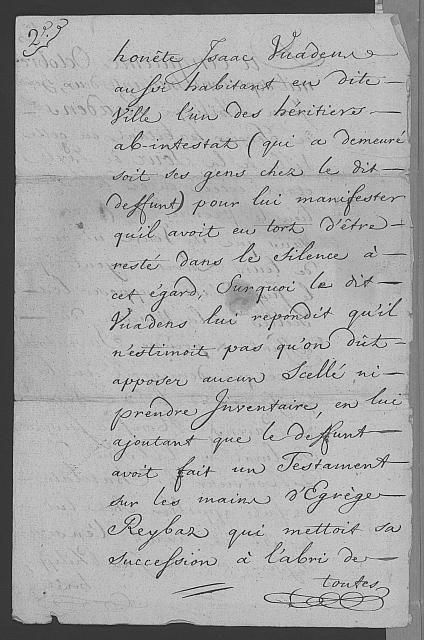 2.
honête Isaac Vuadens
aussi habitant en dite
Ville l'un des héritiers
ab-intestat (qui a demeuré
soit ses gens chez le dit
deffunt) pour lui manifester
qu'il avoit eu tort d'être
resté dans le silence à
cet égard, Surquoi le dit
Vuadens lui repondit qu'il
n'estimoit pas qu'on dût
apposer aucun Scellé ni
prendre Inventaire, en lui
ajoutant que le deffunt
avoit fait un Testament
sur les mains d'Egrège
Reybaz qui mettoit sa
succession à l'abri de
toutes